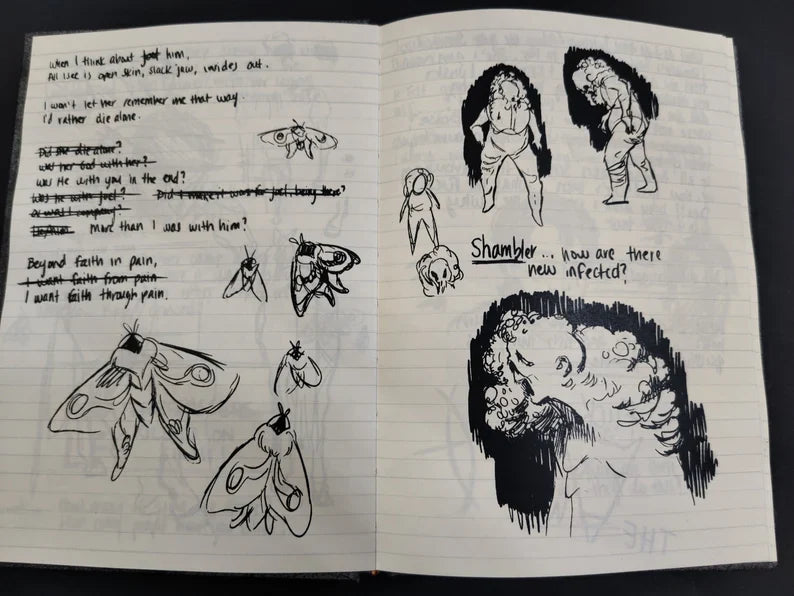 When I think about just him,
All I see is open skin, slack jaw, insides out.
I won't let her remember me that way.
I'd rather die alone.
Did she die alone?
was her God with her?
was He with you in the end?
was He with Joel? Did I make it worse for Joel, being there?
or was I company?
More than I was with him?
Beyond faith in pain,
I want faith from pain
I want faith through pain.
Shambler... how are there
new infected?
THE